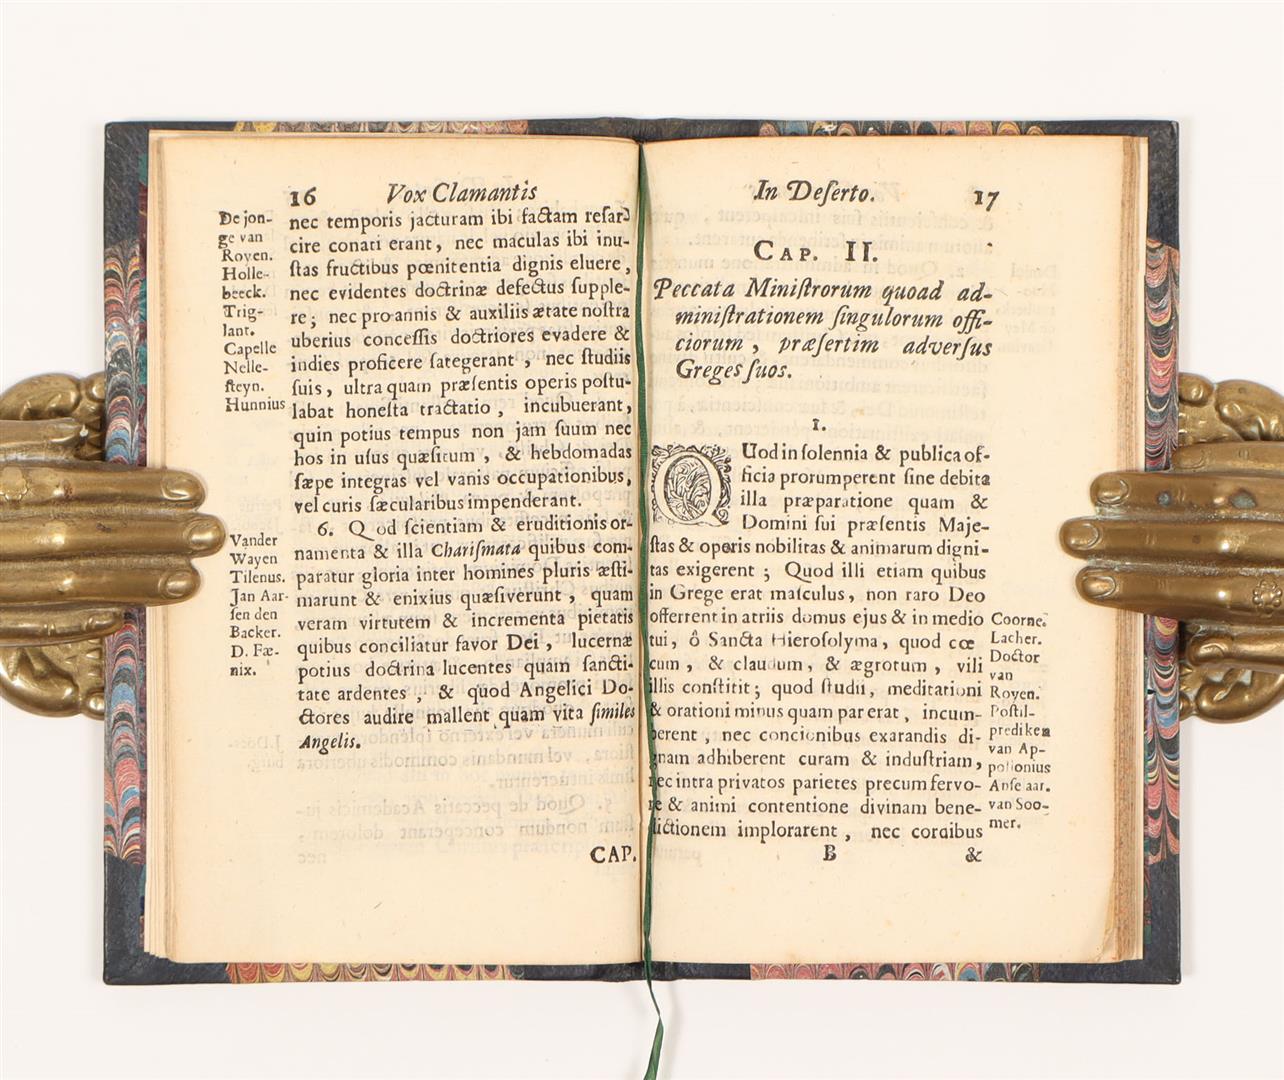 16 Vox Clamantis
De jon-
ge van
Royen.
Holle-
beeck.
Trig-
lant.
Capelle
Nelle-
steyn.
Hunnius
nec temporis jacturam ibi factam resar-
cire conati erant, nec maculas ibi inu-
ſtas fructibus pœnitentia dignis eluere,
nec evidentes doctrinæ defectus ſupple-
re; nec pro annis & auxiliis ætate noſtra
uberius conceſſis doctriores evadere &
indies proficere ſategerant, nec ſtudiis
ſuis, ultra quam præſentis operis poſtu-
labat honeſta tractatio, incubuerant,
quin potius tempus non jam ſuum nec
hos in uſus quæſitum, & hebdomadas
ſæpe integras vel vanis occupationibus,
vel curis ſæcularibus impenderant.
Vander
Wayen
Tilenus.
Jan Aar-
ſen den
Backer.
D. Fæ-
nix.
6. Quod ſcientiam & eruditionis or-
namenta & illa Chariſmata quibus com-
paratur gloria inter homines pluris æſti-
marunt & enixius quæſiverunt, quam
veram virtutem & incrementa pietatis
quibus conciliatur favor Dei, lucernæ
potius doctrina lucentes quam ſancti-
tate ardentes, & quod Angelici Do-
ctores audire mallent quam vita ſimiles
Angelis.
CAP.
In Deſerto. 17
CAP. II.
Peccata Miniſtrorum quoad ad-
miniſtrationem ſingulorum offi-
ciorum, præſertim adverſus
Greges ſuos.
1.
QUod in ſolennia & publica of-
ficia prorumperent ſine debita
illa præparatione quam &
Domini ſui præſentis Maje-
ſtas & operis nobilitas & animarum digni-
tas exigerent; Quod illi etiam quibus
in Grege erat maſculus, non raro Deo
offerrent in atriis domus ejus & in medio
tui, ô Sancta Hieroſolyma, quod cœ
cum, & claudum, & ægrotum, vili
illis conſtitit; quod ſtudii, meditationi
& orationi minus quam par erat, incum-
berent, nec concionibus exarandis di-
gnam adhiberent curam & induſtriam,
nec intra privatos parietes precum fervo-
re & animi contentione divinam bene-
dictionem implorarent, nec cordibus
Coorne.
Lacher.
Doctor
van
Royen.
Poſtil-
prediken
van Ap-
pollonius
Anſe aar.
van Soo-
mer.
B &